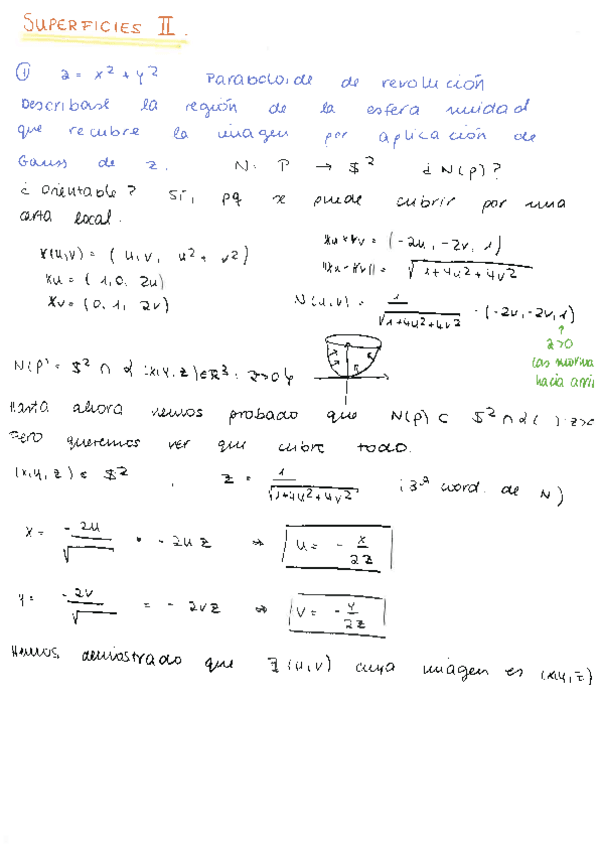 SUPERFICIES II.
① z = x² + y² Paraboloide de revolución
Describase la región de la esfera unidad
que recubre la imagen por aplicación de
Gauss de z. N: P → $² ¿ N(p)?
¿ orientable? Sí, pq se puede cubrir por una
carta local.
x(u,v) = (u,v, u² + v²)
xu = (1,0, 2u)
xv = (0,1, 2v)
xu × xv = (-2u, -2v, 1)
||xu × xv|| = √1+4u²+4v²
N(u,v) = 1/√1+4u²+4v² · (-2u,-2v,1)
↑
z>0
hacia
N(P) = $² ∩ {(x,y,z)∈ℝ³: z>0}
Hasta ahora hemos probado que N(p) ⊂ $² ∩ { }: z>0
Pero queremos ver que cubre todo.
(x,y,z) ∈ $² , z = 1/√1+4u²+4v² (3ª coord. de N)
x = -2u/√ = -2uz ⇒ u = - x/2z
y = -2v/√ = -2vz ⇒ v = - y/2z
Hemos demostrado que ∃(u,v) cuya imagen es (x,y,z)